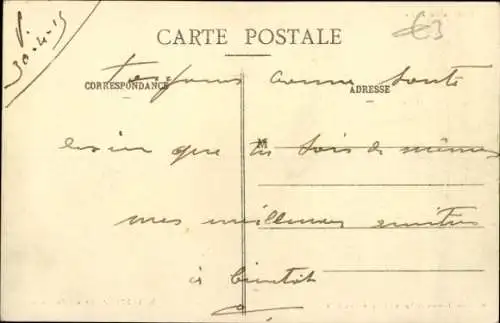 30-4-15
€3
CARTE POSTALE
CORRESPONDANCE
ADRESSE
M
Toujours bonne santé
que tu sois de même
mes meilleures amitiés
à bientôt